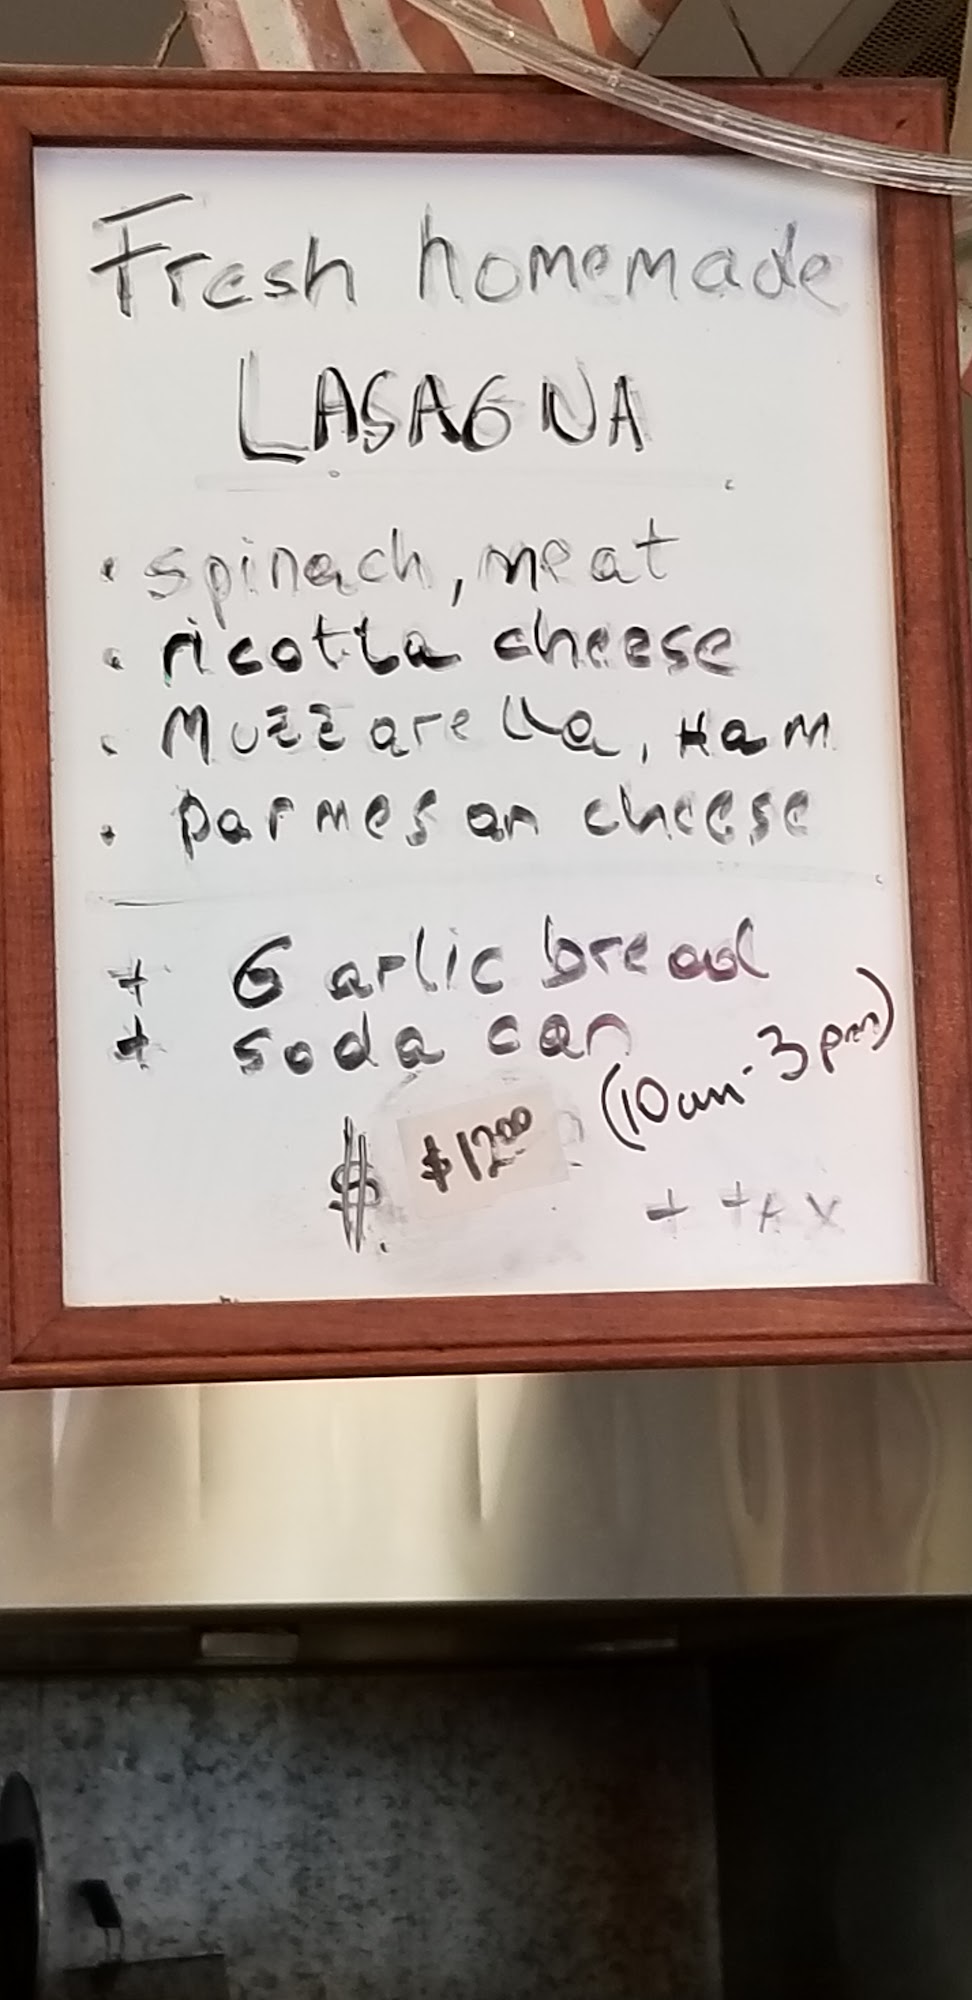 Fresh homemade
LASAGNA
• spinach, meat
• ricotta cheese
• Muzzarella, Ham
• parmesan cheese
+ Garlic bread
+ soda can
(10am - 3pm)
$ $12.00
+ tax